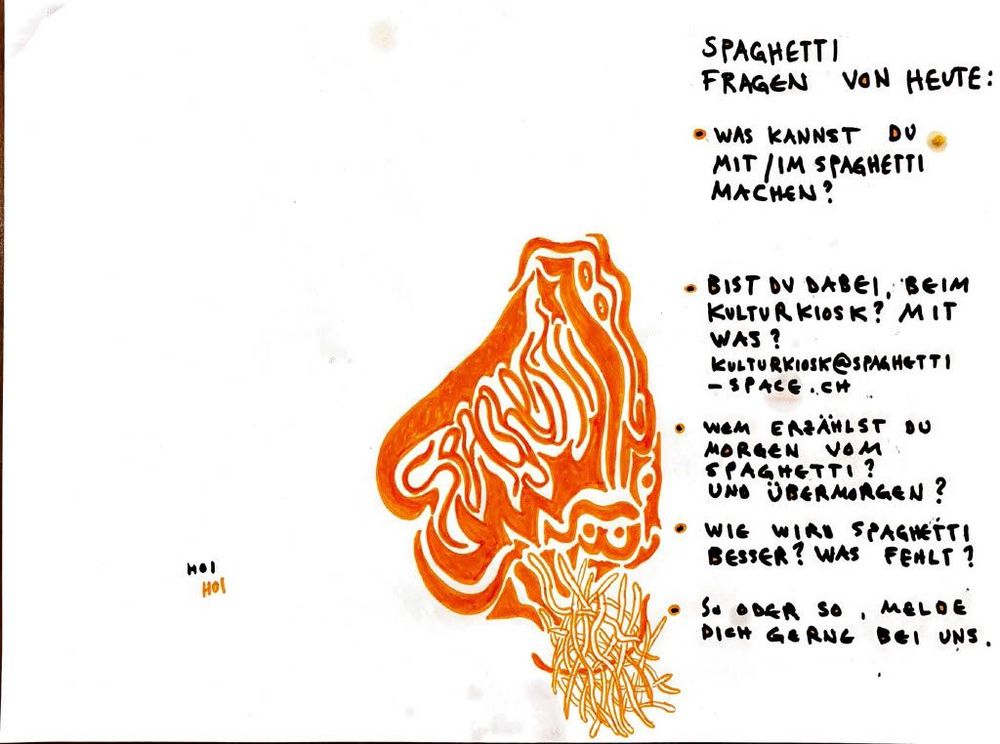 SPAGHETTI
FRAGEN VON HEUTE:
• WAS KANNST DU
MIT/IM SPAGHETTI
MACHEN?
• BIST DU DABEI, BEIM
KULTURKIOSK? MIT
WAS?
KULTURKIOSK@SPAGHETTI
-SPACE.CH
• WEM ERZÄHLST DU
MORGEN VOM
SPAGHETTI?
UND ÜBERMORGEN?
• WIE WIRD SPAGHETTI
BESSER? WAS FEHLT?
• SO ODER SO, MELDE
DICH GERNE BEI UNS.
HOI
HOI